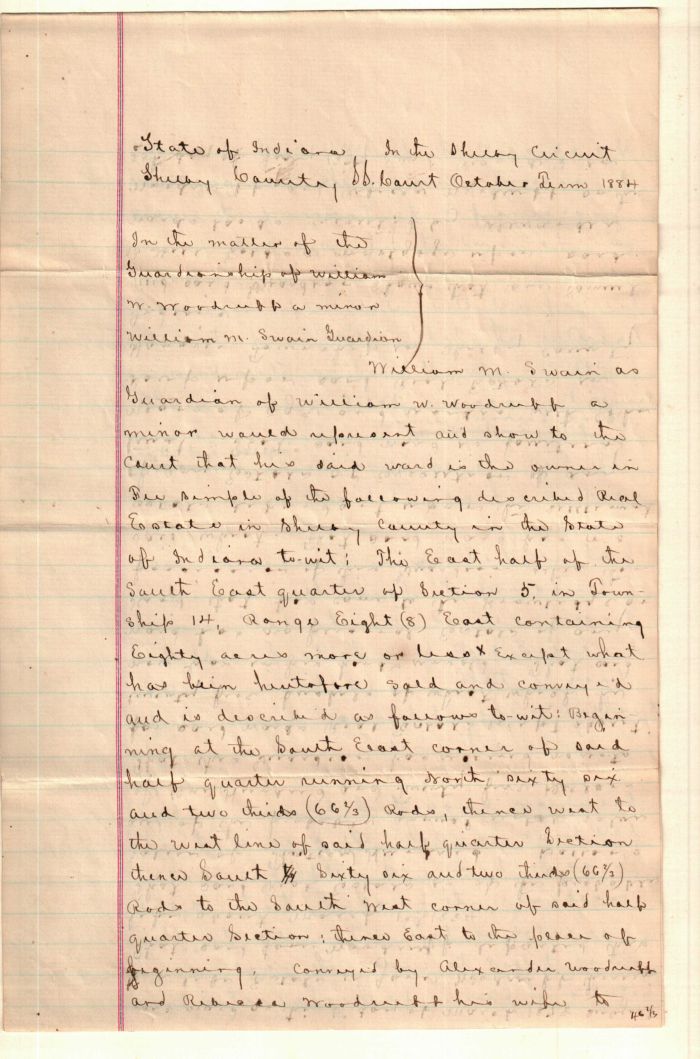 State of Indiana, In the Shelby Circuit
Shelby County, SS. Court October Term 1884
In the matter of the
Guardianship of William
W. Woodruff a minor
William M. Swain Guardian
William M. Swain as
Guardian of William W. Woodruff a
minor would represent and show to the
Court that his said ward is the owner in
Fee simple of the following described Real
Estate in Shelby County in the State
of Indiana to-wit: The East half of the
South East quarter of Section 5, in Town-
ship 14, Range Eight (8) East containing
Eighty acres more or less x Except what
has been heretofore sold and conveyed
and is described as follows to-wit: Begin-
ning at the South East corner of said
half quarter running North sixty six
and two thirds (66 2/3) Rods, thence west to
the west line of said half quarter Section
thence South Sixty six and two thirds (66 2/3)
Rods to the South West corner of said half
quarter Section; thence East to the place of
beginning. Conveyed by Alexander Woodruff
and Rebecca Woodruff his wife to
46 2/3